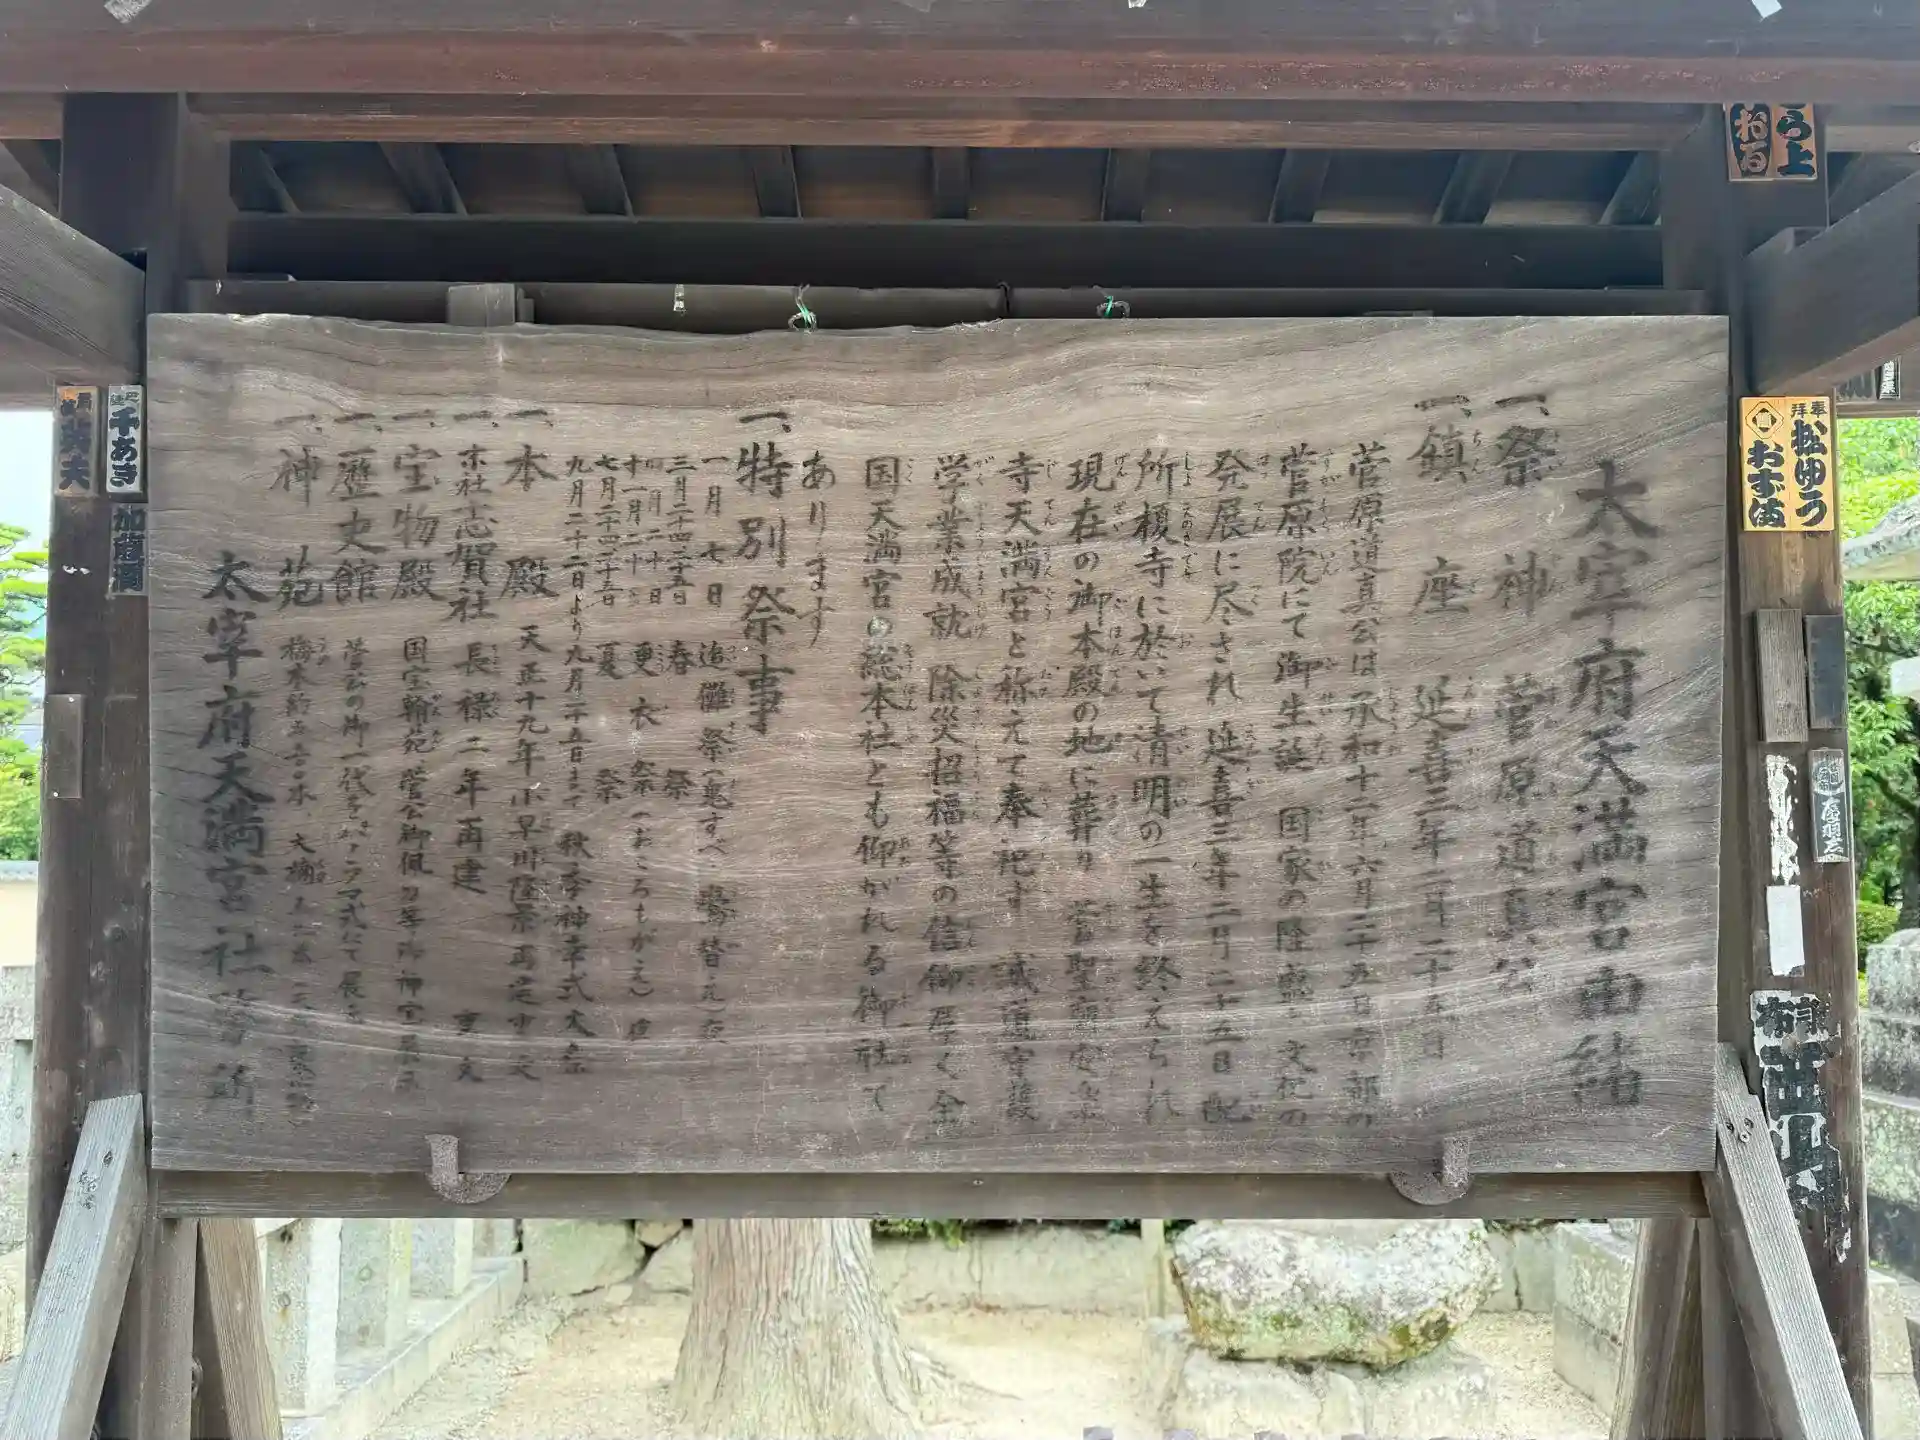 太宰府天満宮由緒
一、祭神 菅原道真公
一、鎮座 延喜三年二月二十五日
菅原道真公は承和十二年六月二十五日京都の
菅原院にて御生誕 国家の隆盛と文化の
発展に尽され 延喜三年二月二十五日配
所榎寺に於いて清明の一生を終えられ
現在の御本殿の地に葬り 菅聖廟安楽
寺天満宮と称えて奉祀す 誠心守護
学業成就 除災招福等の信仰厚く全
国天満宮の総本社とも仰がれる御社で
あります
一、特別祭事
一月 七日 追儺祭(鬼すべ 鷽替え)夜
三月二十四二十五日 春祭
四月二十日
十一月二十日 更衣祭(おころもがえ)夜
七月二十四二十五日 夏祭
九月二十二日より九月二十五日まで 秋季神幸式大祭
一、本殿 天正十九年小早川隆景再建 重文
一、末社志賀社 長禄二年再建 重文
一、宝物殿 国宝翰苑、菅公御佩刀等御神宝展示
一、歴史館 菅公の御一代をジオラマ式にて展示
一、神苑 梅木約
太宰府天満宮社務所
千あき
加藤
奉拝
松ゆう
おずほ
ら上